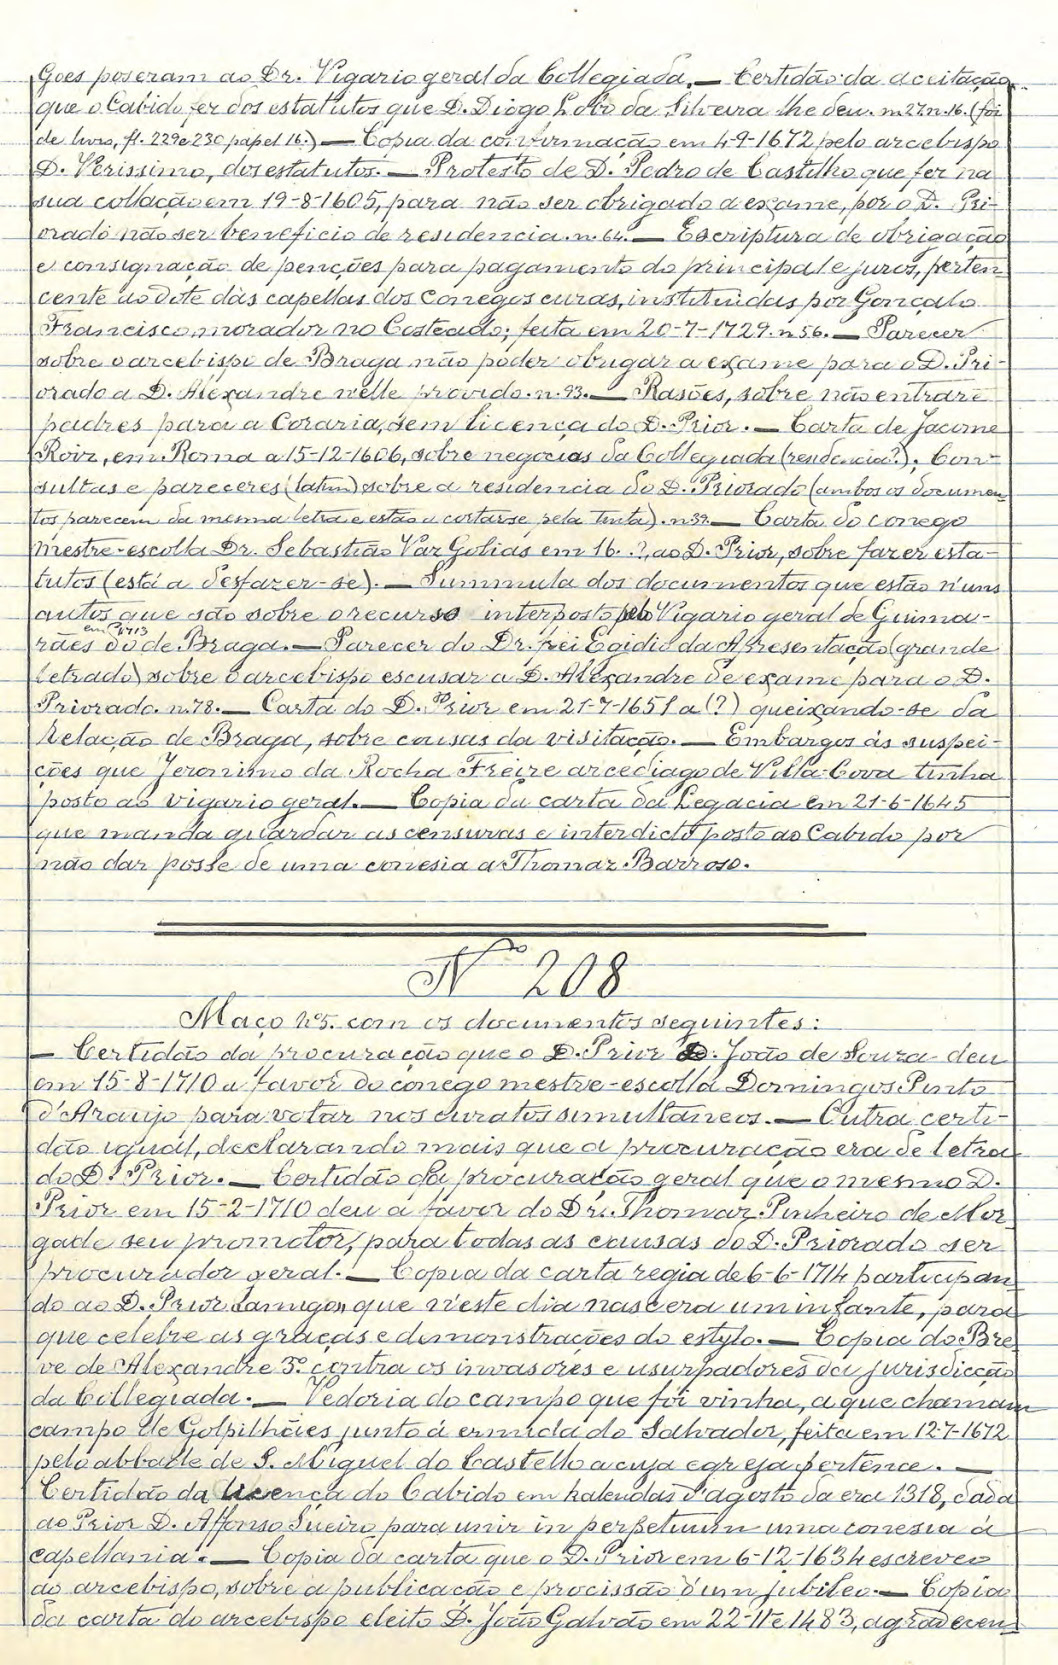 Goes poseram ao Dr. Vigario geral da Collegiada. — Certidão da aceitação
que o Cabido fez dos estatutos que D. Diogo Lobo da Silveira lhe deu. m 27. n. 16. (foi
de livro, fl. 229 e 230 papel 16.) — Copia da confirmação em 4-9-1672 pelo arcebispo
D. Verissimo, dos estatutos. — Protesto de D. Pedro de Castilho que fez na
sua collação em 19-8-1605, para não ser obrigado a exame, por o D. Pri-
orado não ser beneficio de residencia. n. 64. — Escriptura de obrigação
e consignação de penções para pagamento do principal e juros, perten
cente ao dote das capellas dos conegos curas, instituidas por Gonçalo
Francisco, morador no Costeado; feita em 20-7-1729. n 56. — Parecer
sobre o arcebispo de Braga não poder obrigar a exame para o D. Pri-
orado a D. Alexandre n'elle provido. n. 93. — Rasões, sobre não entrarē
padres para a Coraria, sem licença do D. Prior. — Carta de Jacome
Roiz, em Roma a 15-12-1606, sobre negocios da Collegiada (residencia?); Con-
sultas e pareceres (latim) sobre a residencia do D. Priorado (ambos os documen-
tos parecem da mesma letra e estão a cortarse pela tinta). n 39. — Carta do conego
mestre-escolla Dr. Sebastião Vaz Golias em 16..?, ao D. Prior, sobre fazer esta-
tutos (está a desfazer-se). — Summula dos documentos que estão n'uns
autos que são sobre o recurso interposto pelo Vigario geral de Guima-
rães em 1713 do de Braga. — Parecer do Dr. frei Egidio da Apresentação (grande
letrado) sobre o arcebispo escusar a D. Alexandre de exame para o D.
Priorado. n. 78. — Carta do D. Prior em 21-7-1651 a (?) queixando-se da
Relação de Braga, sobre causas da visitação. — Embargos ás suspei-
ções que Jeronimo da Rocha Freire arcediago de Villa-Cova tinha
posto ao vigario geral. — Copia da carta da Legacia em 21-6-1645
que manda guardar as censuras e interdicto posto ao Cabido por
não dar posse de uma conesia a Thomaz Barroso.
Nº 208
Maço nº 5. com os documentos seguintes:
— Certidão da procuração que o D. Prior D. João de Souza deu
em 15-8-1710 a favor do conego mestre-escolla Domingos Pinto
d'Araujo para votar nos curatos simultaneos. — Outra certi-
dão igual, declarando mais que a procuração era de letra
do D. Prior. — Certidão da procuração geral que o mesmo D.
Prior em 15-2-1710 deu a favor do Dr. Thomaz Pinheiro de Mor
gade seu promotor, para todas as causas do D. Priorado ser
procurador geral. — Copia da carta regia de 6-6-1714 participan
do ao D. Prior que n'este dia nascera um infante, para
que celebre as graças e demonstrações do estylo. — Copia do Bre
ve de Alexandre 3º contra os invasores e usurpadores da jurisdicção
da Collegiada. — Vedoria do campo que foi vinha, a que chamam
campo de Golpilhães junto á ermida do Salvador, feita em 12-7-1672
pelo abbade de S. Miguel do Castello a cuja egreja pertence. —
Certidão da licença do Cabido em kalendas d'agosto da era 1318, dada
ao Prior D. Affonso Sueiro para unir in perpetuum uma conesia á
capellania. — Copia da carta que o D. Prior em 6-12-1634 escreveo
ao arcebispo, sobre a publicação e procissão d'um jubileo. — Copia
da carta do arcebispo eleito D. João Galvão em 22-11 e 1483, agradecen-